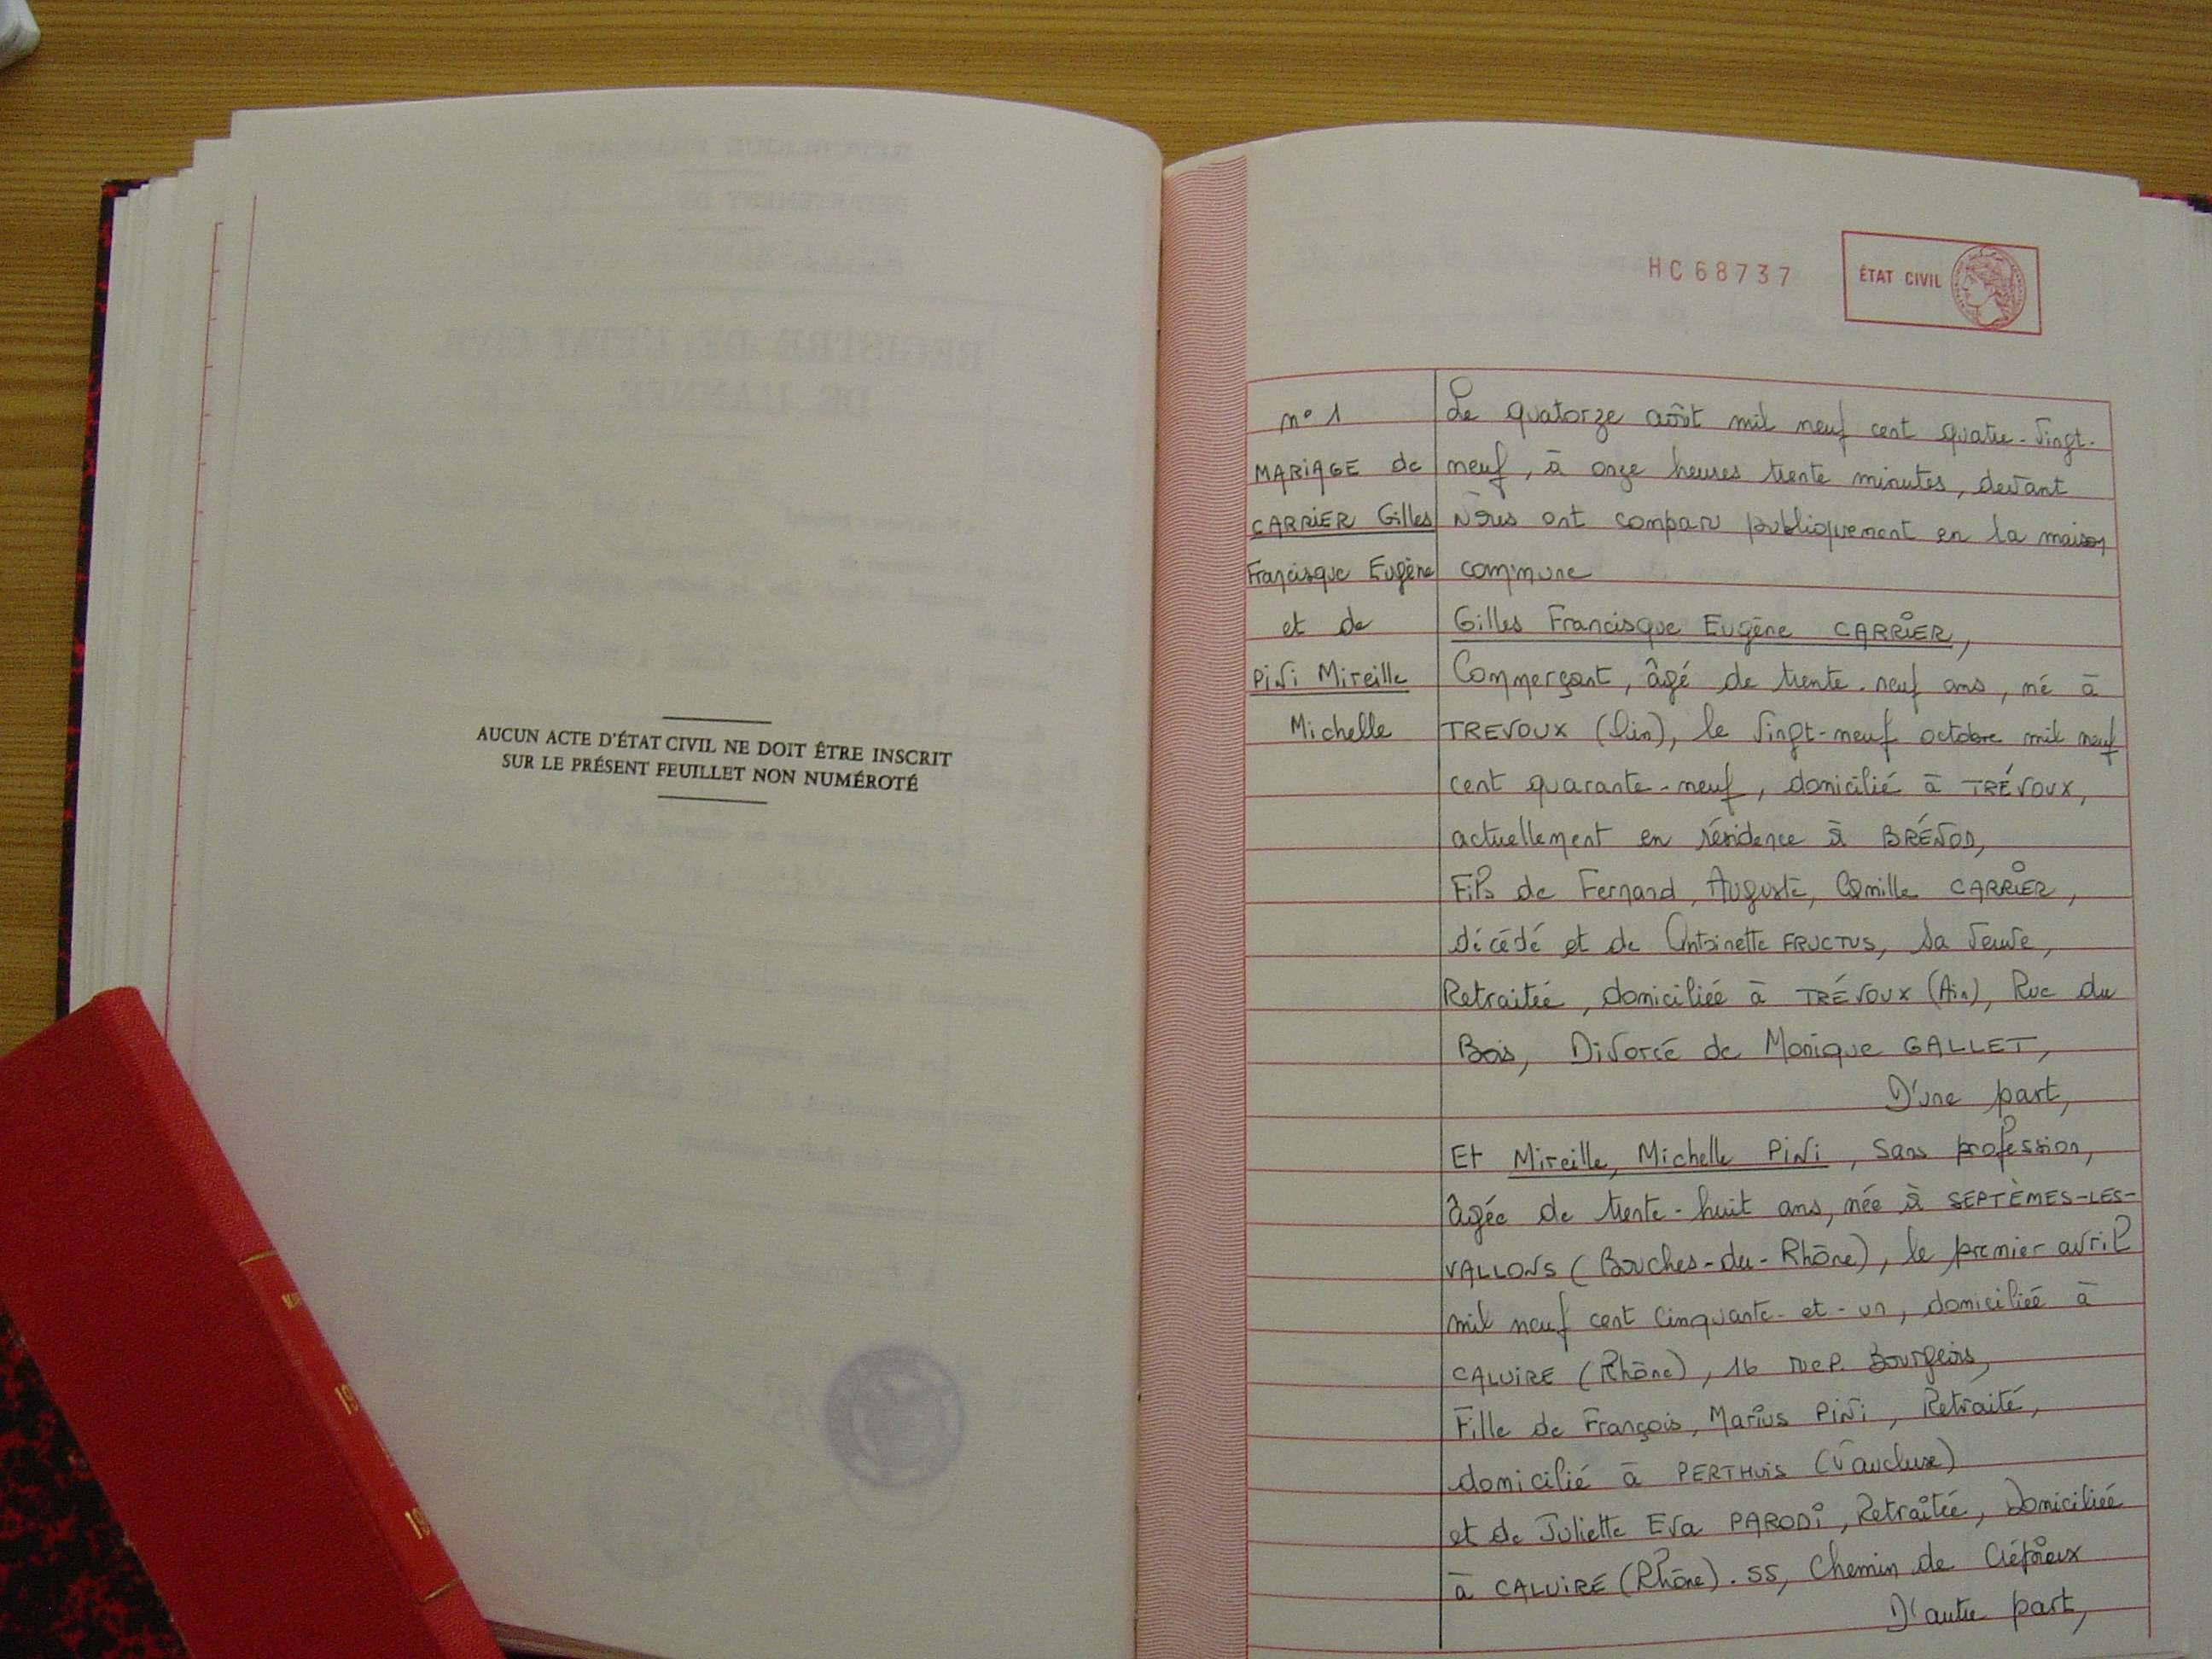 AUCUN ACTE D'ÉTAT CIVIL NE DOIT ÊTRE INSCRIT
SUR LE PRÉSENT FEUILLET NON NUMÉROTÉ
HC68737
ÉTAT CIVIL
n° 1
MARIAGE de
CARRIER Gilles
Francisque Eugène
et de
PINI Mireille
Michelle
Le quatorze août mil neuf cent quatre-vingt-
neuf, à onze heures trente minutes, devant
Nous ont comparu publiquement en la maison
commune
Gilles Francisque Eugène CARRIER,
Commerçant, âgé de trente-neuf ans, né à
TREVOUX (Ain), le vingt-neuf octobre mil neuf
cent quarante-neuf, domicilié à TRÉVOUX,
actuellement en résidence à BRÉNOD,
Fils de Fernand, Auguste, Camille CARRIER,
décédé et de Antoinette FRUCTUS, sa veuve,
Retraitée, domiciliée à TRÉVOUX (Ain), Rue du
Bois, Divorcé de Monique GALLET,
D'une part,
Et Mireille, Michelle PINI, Sans profession,
âgée de trente-huit ans, née à SEPTÈMES-LES-
VALLONS (Bouches-du-Rhône), le premier avril
mil neuf cent cinquante-et-un, domiciliée à
CALUIRE (Rhône), 16 rue P. Bourgeois,
Fille de François, Marius PINI, Retraité,
domicilié à PERTHUIS (Vaucluse)
et de Juliette Eva PARODI, Retraitée, domiciliée
à CALUIRE (Rhône). 55, Chemin de Crépieux
D'autre part,